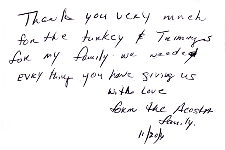 Thank you very much
for the turkey & Trimmings
for my family we needed
every thing you have giving us
with Love
form the Acosta
family.
11/20/